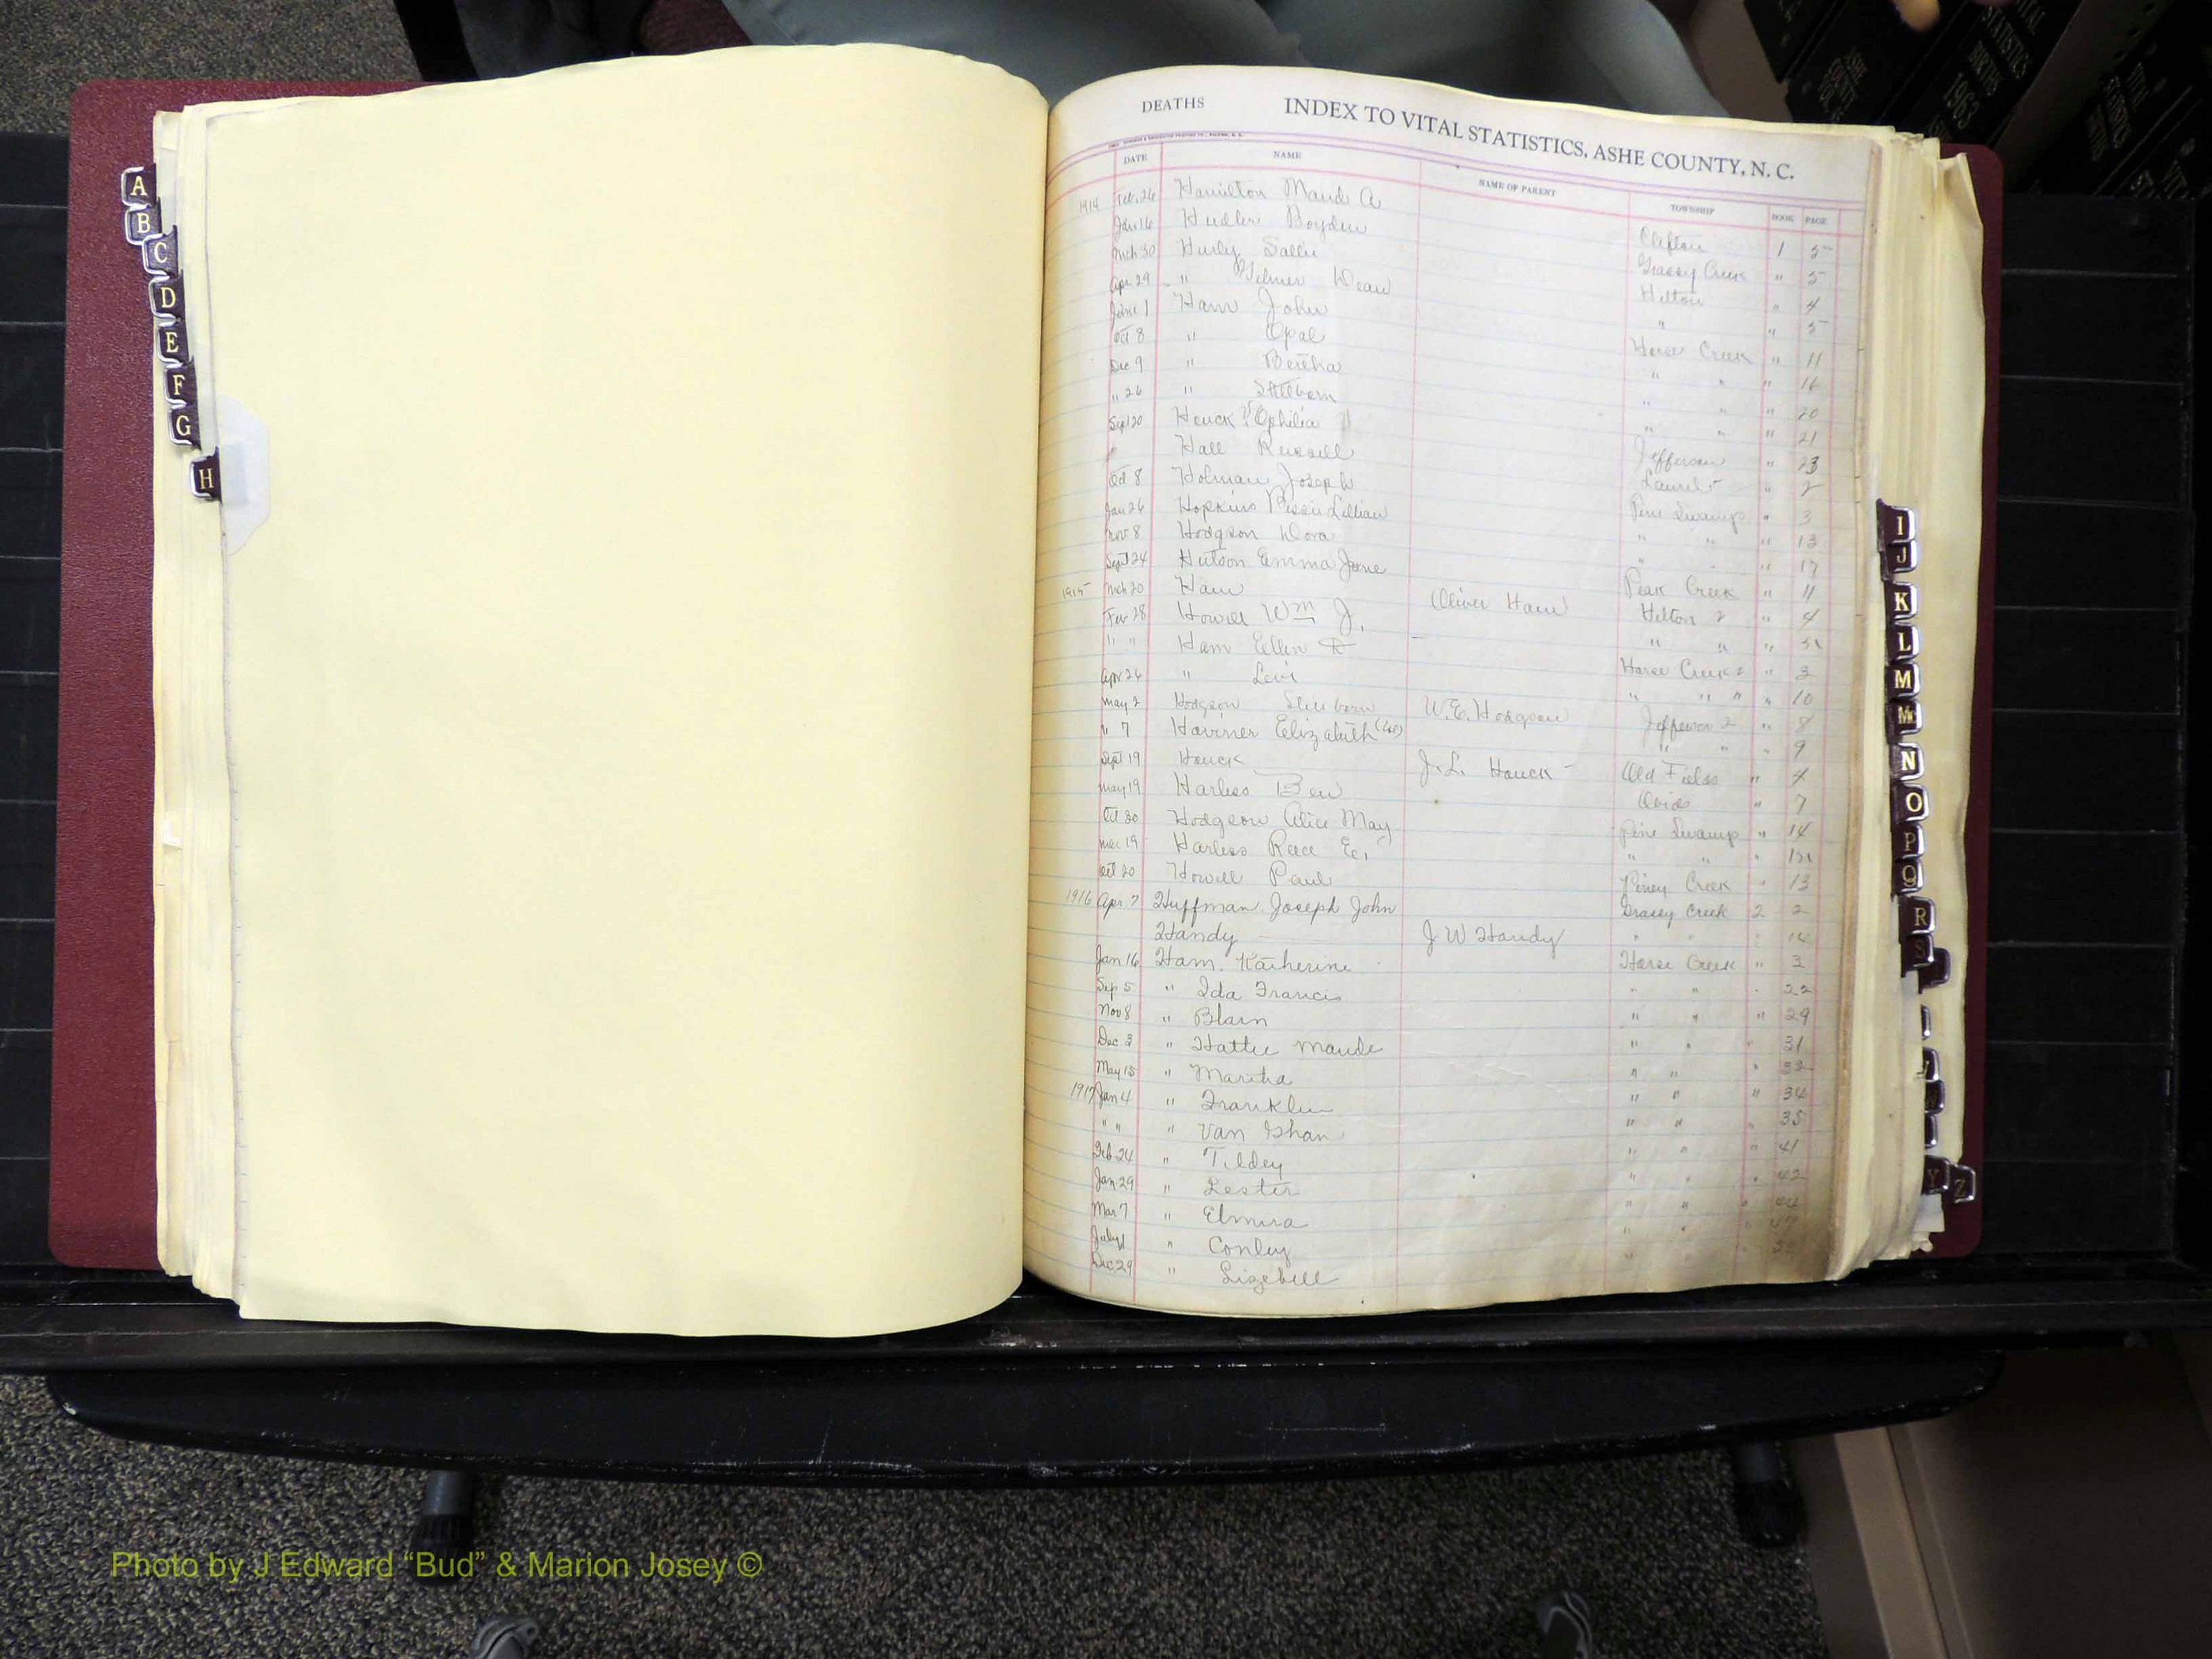 A
B
C
D
E
F
G
H
DEATHS INDEX TO VITAL STATISTICS, ASHE COUNTY, N. C.
DATE NAME NAME OF PARENT TOWNSHIP BOOK PAGE
1914 Feb. 26 Hamilton Maud A Clifton 1 5
Jan 16 Hudler Boyden Grassy Creek " 5
Mch 30 Hurly Sallie Hilton " 4
Apr 29 " Wilmer Dean " " 5
June 1 Ham John Horse Creek " 11
Oct 8 " Opal " " " 16
Dec 9 " Bertha " " " 20
" 26 " Stillborn " " " 21
Sept 20 Houck Ophilia Jefferson " 23
" Hall Russell Laurel " 2
Oct 8 Holman Joseph Pine Swamp " 3
Jan 26 Hopkins Bessie Lillian " " " 13
Nov 8 Hodgson Dora " " " 17
Sept 24 Hutson Emma Jane Peak Creek " 11
1915 Mch 20 Ham Oliver Ham Hilton 2 " 4
Feb 28 Howell Wm J. " " "
" " Ham Ellen Horse Creek 2 " 3
Apr 26 " Levi " " " " 10
May 2 Hodgson Stillborn W.E. Hodgson Jefferson 2 " 8
" 7 Haviner Elizabeth " " " 9
Sept 19 Houck J. L. Houck Old Fields " 4
May 19 Harless Ben Obids " 7
Oct 30 Hodgson Alice May Pine Swamp " 14
Mar 19 Harless Reece E. " " "
Oct 20 Howell Paul Piney Creek " 13
1916 Apr 7 Huffman Joseph John Grassy Creek 2 2
Handy J W Handy " " " 14
Jan 16 Ham Katherine Horse Creek " 3
Sep 5 " Ida Francis " " " 22
Nov 8 " Blain " " " 29
Dec 3 " Hattie Maude " " " 31
May 15 " Martha " " " 32
1917 Jan 4 " Franklin " " " 34
" " " Van " " " 35
Feb 24 " Tildey " " " 41
Jan 29 " Lester " " " 42
Mar 7 " Elmira " " " 44
July 1 " Conley " " "
Dec 29 " Lizebell " "
I
J
K
L
M
Mc
N
O
P
Q
R
S
Y Z
VITAL STATISTICS BIRTHS 1963
ASHE COUNTY
Photo by J Edward “Bud” & Marion Josey ©